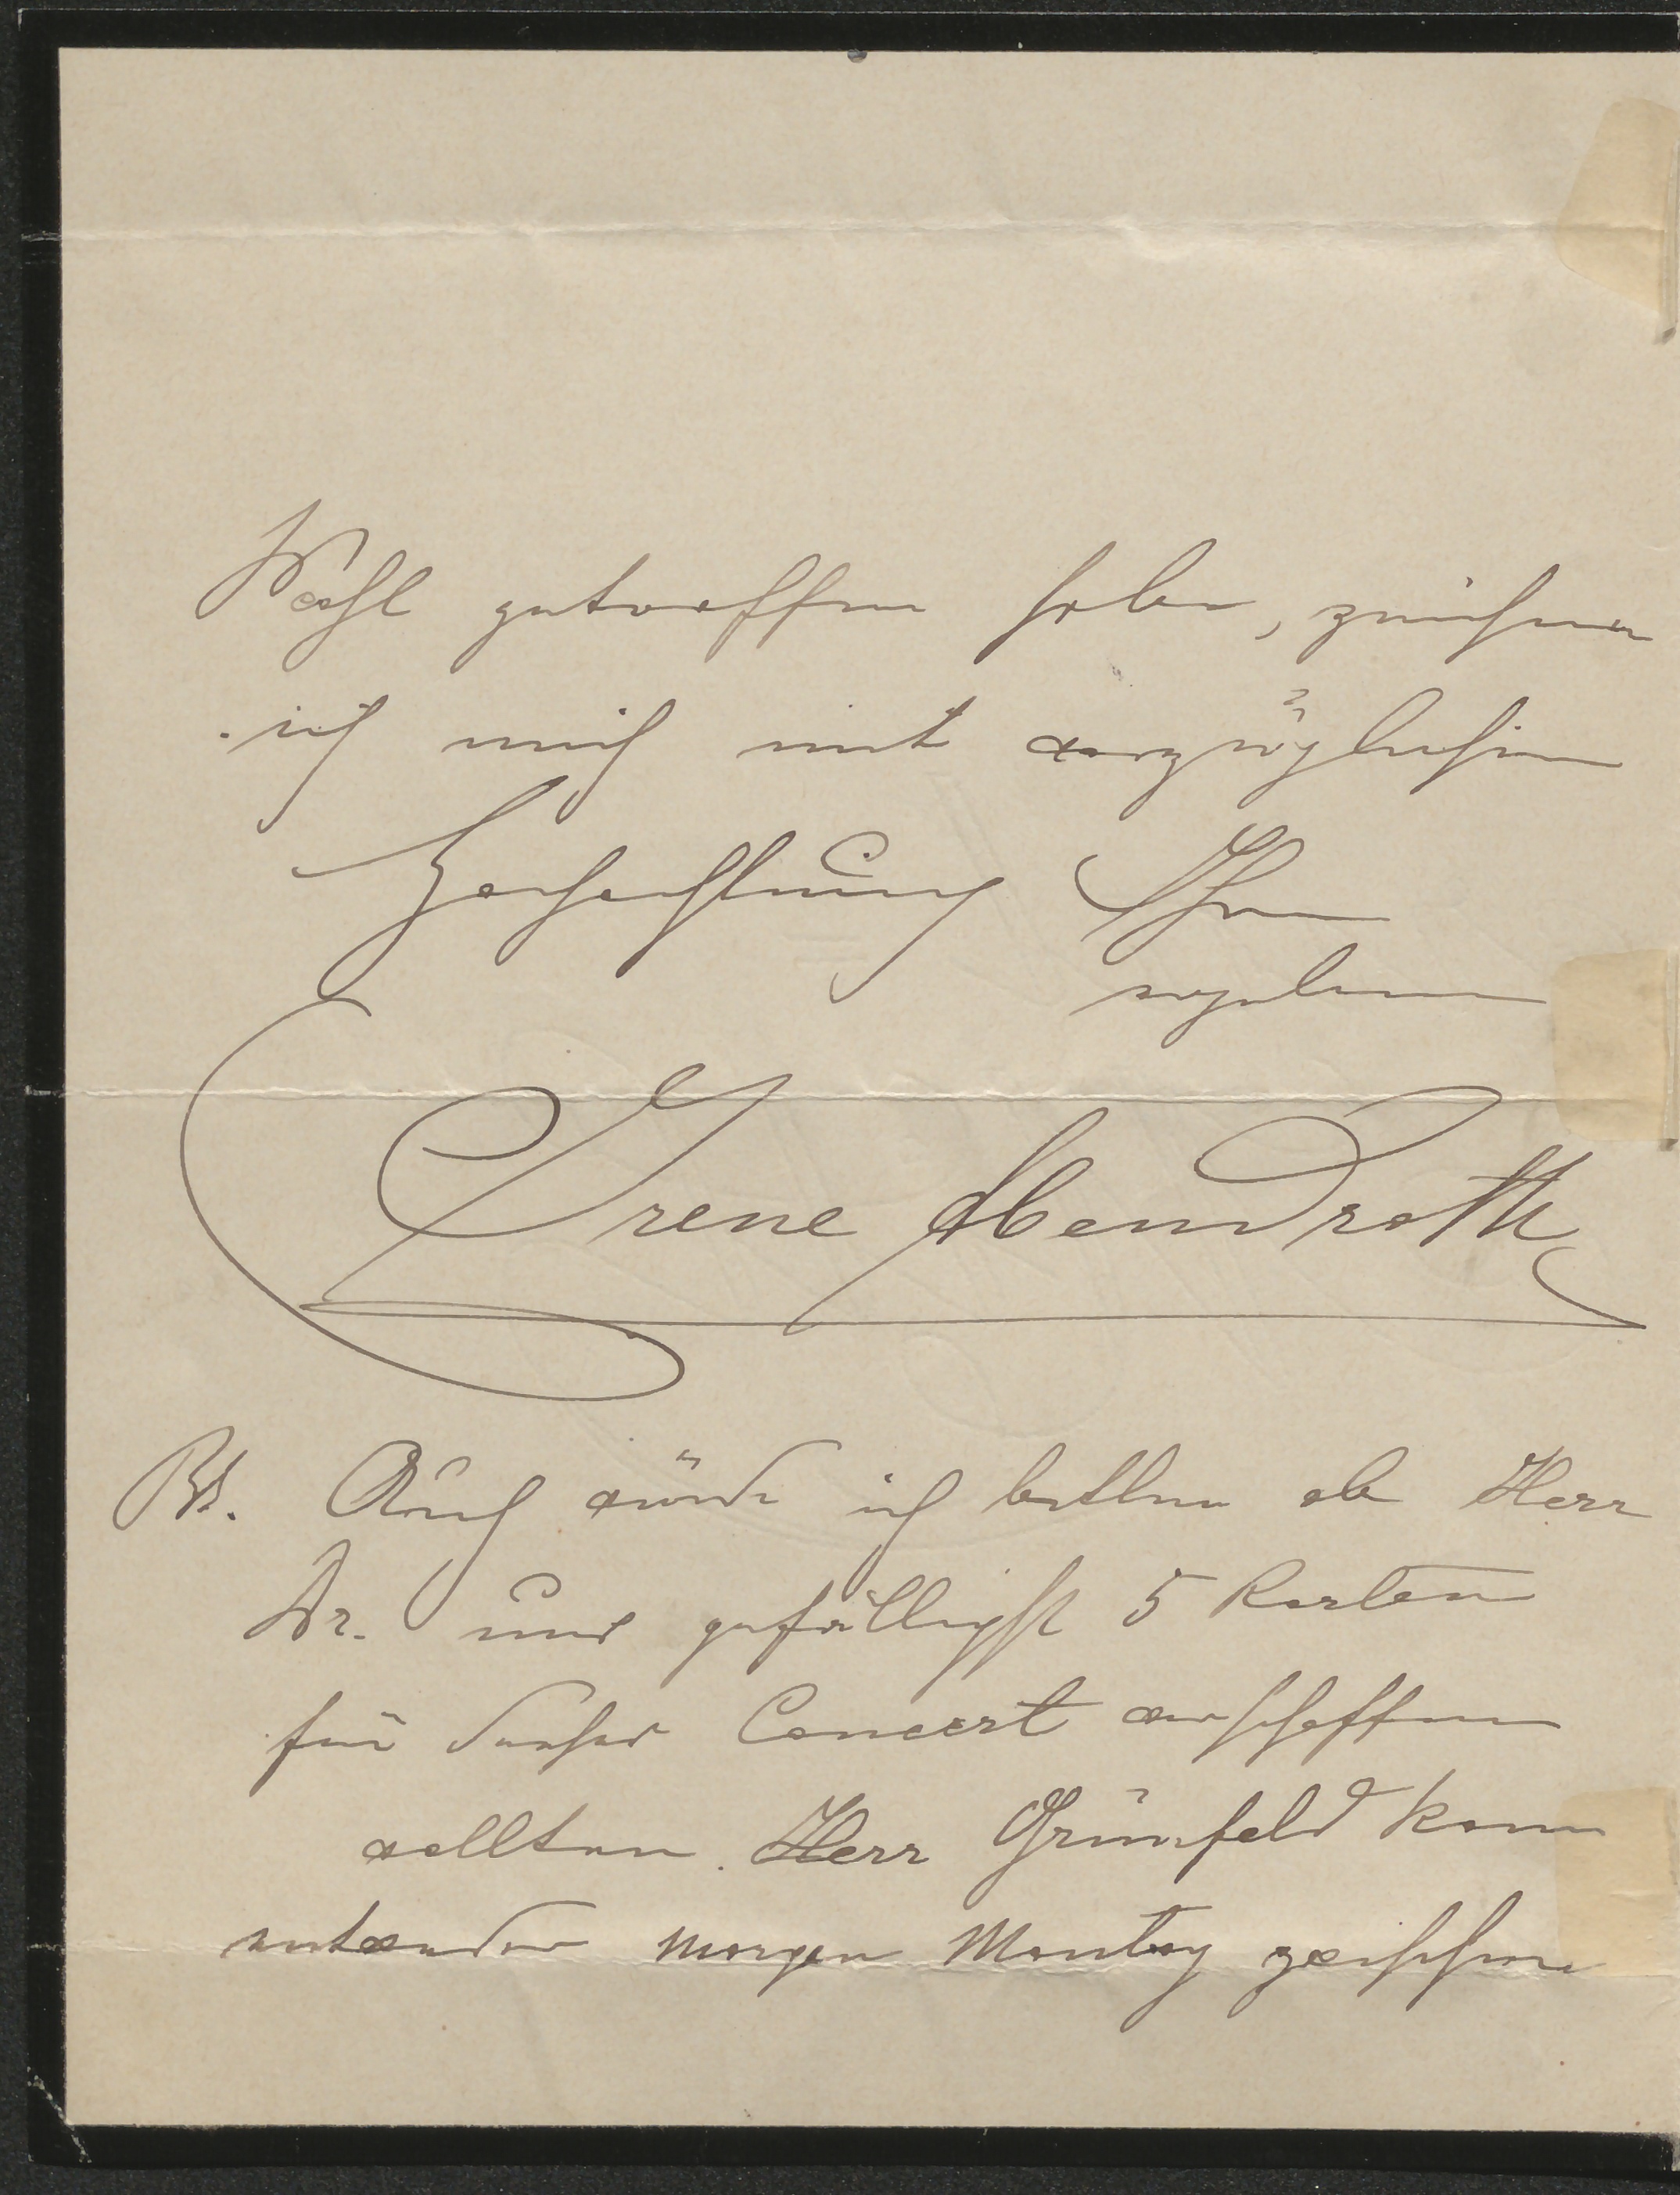 Wahl getroffen habe, zeichne
ich mich mit vorzüglicher
Hochachtung Ihre
ergebene
Irene Abendroth
PS. Auch würde ich bitten ob Herr
Dr. uns gefälligst 5 Karten
für dieses Concert verschaffen
wollten. Herr Grünfeld kann
entweder morgen Montag zwischen